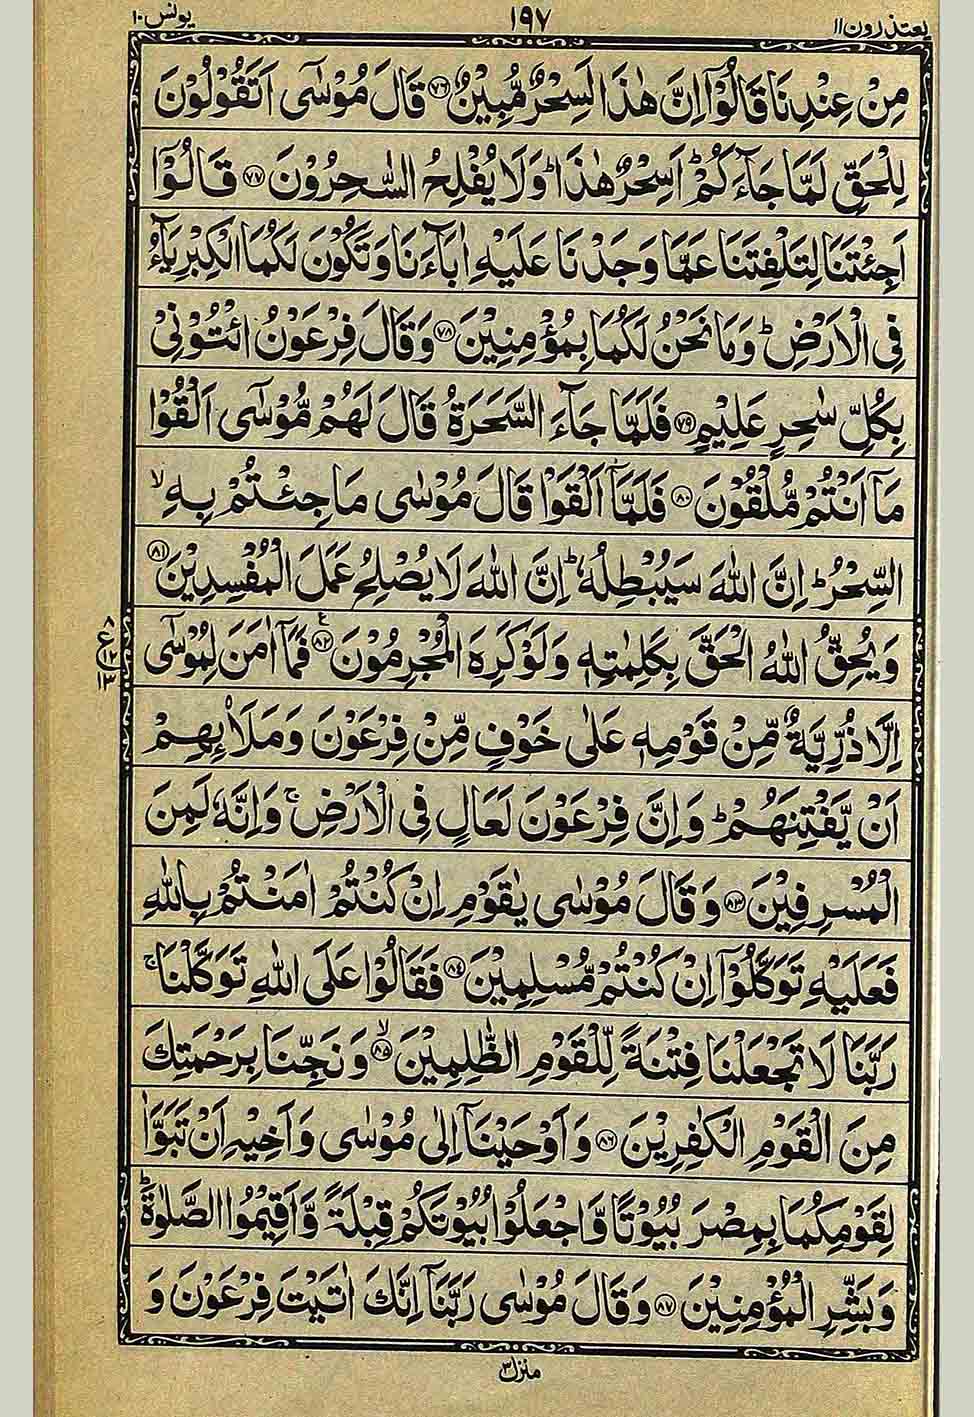 یعتذرون ۱۱
۱۹۷
یونس ۱۰
مِنْ عِنْدِنَا قَالُوْۤا اِنَّ هٰذَا لَسِحْرٌ مُّبِیْنٌ ۷۶ قَالَ مُوْسٰۤی اَتَقُوْلُوْنَ
لِلْحَقِّ لَمَّا جَآءَكُمْ ؕ اَسِحْرٌ هٰذَا ؕ وَلَا یُفْلِحُ السّٰحِرُوْنَ ۷۷ قَالُوْۤا
اَجِئْتَنَا لِتَلْفِتَنَا عَمَّا وَجَدْنَا عَلَیْهِ اٰبَآءَنَا وَتَكُوْنَ لَكُمَا الْكِبْرِیَآءُ
فِی الْاَرْضِ ؕ وَمَا نَحْنُ لَكُمَا بِمُؤْمِنِیْنَ ۷۸ وَقَالَ فِرْعَوْنُ ائْتُوْنِیْ
بِكُلِّ سٰحِرٍ عَلِیْمٍ ۷۹ فَلَمَّا جَآءَ السَّحَرَةُ قَالَ لَهُمْ مُّوْسٰۤی اَلْقُوْا
مَاۤ اَنْتُمْ مُّلْقُوْنَ ۸۰ فَلَمَّاۤ اَلْقَوْا قَالَ مُوْسٰی مَا جِئْتُمْ بِهِ ۙ
السِّحْرُ ؕ اِنَّ اللّٰهَ سَیُبْطِلُهٗ ؕ اِنَّ اللّٰهَ لَا یُصْلِحُ عَمَلَ الْمُفْسِدِیْنَ ۸۱
وَیُحِقُّ اللّٰهُ الْحَقَّ بِكَلِمٰتِهٖ وَلَوْ كَرِهَ الْمُجْرِمُوْنَ ۸۲ ع فَمَاۤ اٰمَنَ لِمُوْسٰۤی
۸ ع ۱۲ ۱۳
اِلَّا ذُرِّیَّةٌ مِّنْ قَوْمِهٖ عَلٰی خَوْفٍ مِّنْ فِرْعَوْنَ وَمَلَا۟ئِهِمْ
اَنْ یَّفْتِنَهُمْ ؕ وَاِنَّ فِرْعَوْنَ لَعَالٍ فِی الْاَرْضِ ۚ وَاِنَّهٗ لَمِنَ
الْمُسْرِفِیْنَ ۸۳ وَقَالَ مُوْسٰی یٰقَوْمِ اِنْ كُنْتُمْ اٰمَنْتُمْ بِاللّٰهِ
فَعَلَیْهِ تَوَكَّلُوْۤا اِنْ كُنْتُمْ مُّسْلِمِیْنَ ۸۴ فَقَالُوْا عَلَی اللّٰهِ تَوَكَّلْنَا ۚ
رَبَّنَا لَا تَجْعَلْنَا فِتْنَةً لِّلْقَوْمِ الظّٰلِمِیْنَ ۙ ۸۵ وَنَجِّنَا بِرَحْمَتِكَ
مِنَ الْقَوْمِ الْكٰفِرِیْنَ ۸۶ وَاَوْحَیْنَاۤ اِلٰی مُوْسٰی وَاَخِیْهِ اَنْ تَبَوَّاٰ
لِقَوْمِكُمَا بِمِصْرَ بُیُوْتًا وَّاجْعَلُوْا بُیُوْتَكُمْ قِبْلَةً وَّاَقِیْمُوا الصَّلٰوةَ ؕ
وَبَشِّرِ الْمُؤْمِنِیْنَ ۸۷ وَقَالَ مُوْسٰی رَبَّنَاۤ اِنَّكَ اٰتَیْتَ فِرْعَوْنَ وَ
منزل ۳